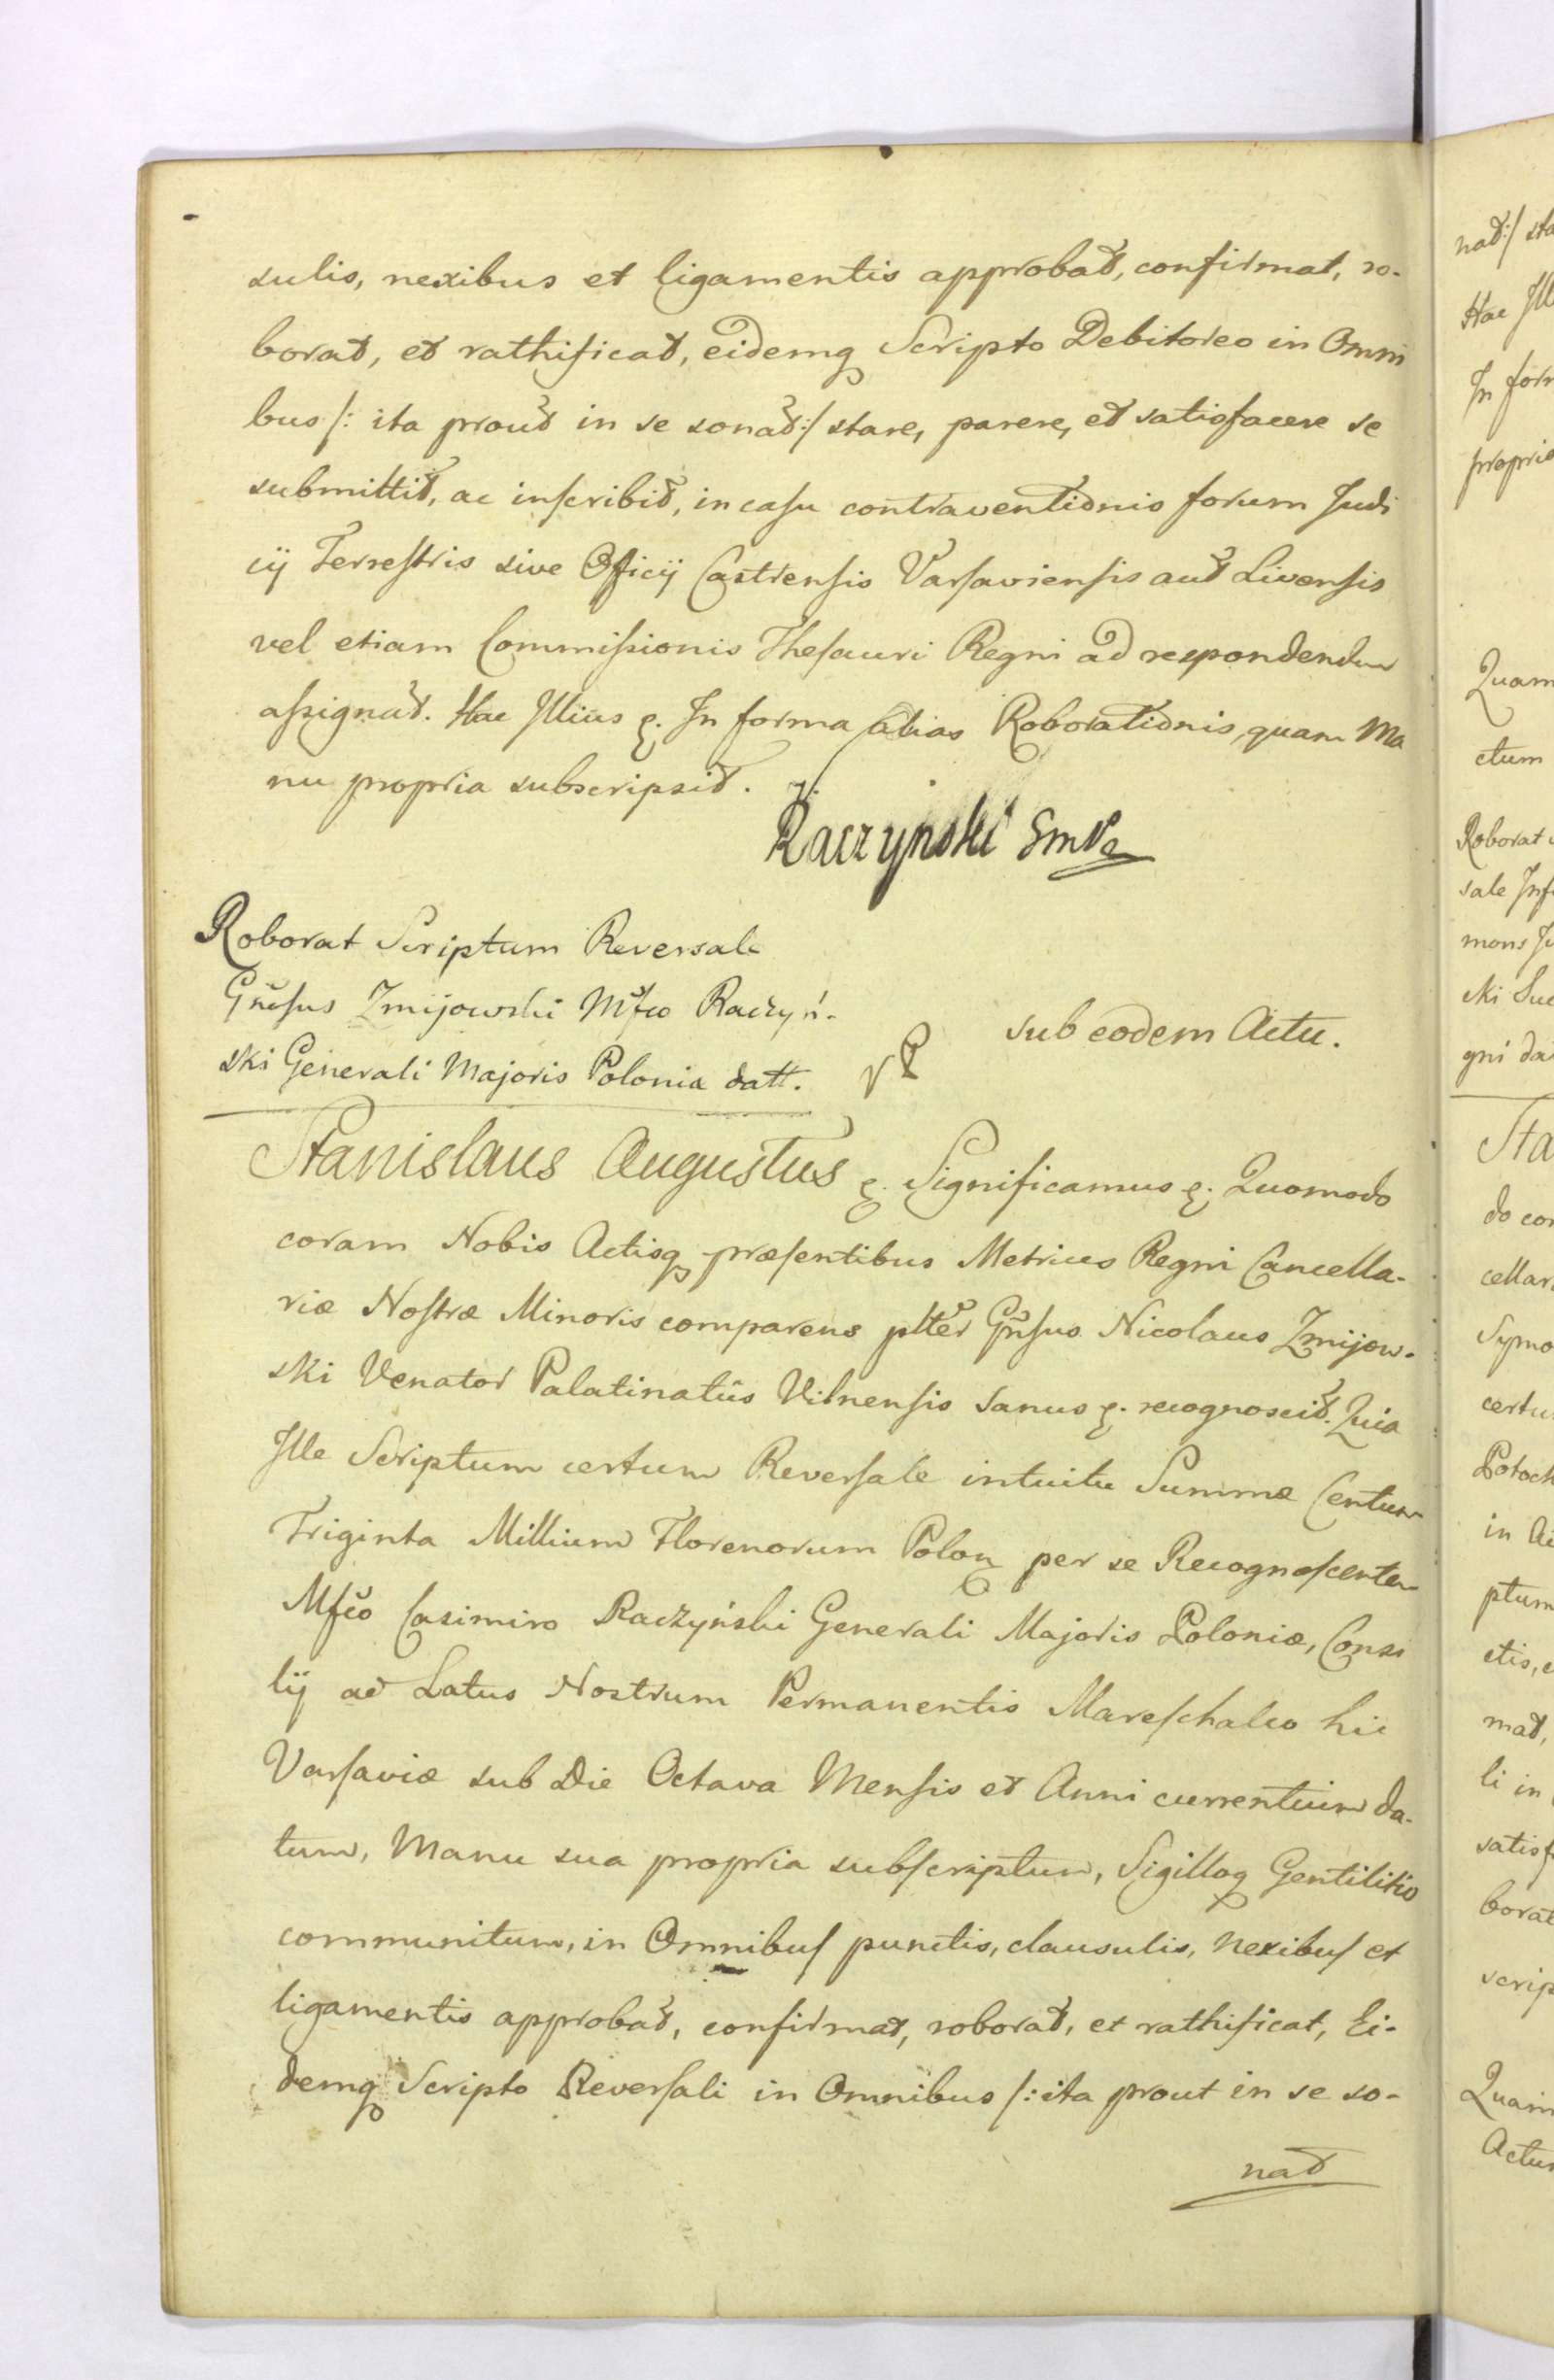 sulis, nexibus et ligamentis approbat, confirmat, ro-
borat, et rathificat, eidemq Scripto Debitoreo in Omni
bus /: ita prout in se sonat :/ stare, parere, et satisfacere se
submittit, ac inscribit, in casu contraventionis forum Judi
cij Terrestris sive Officij Castrensis Varsaviensis aut Livensis
vel etiam Commissionis Thesauri Regni ad respondendum
assignat. Hac Illius &. In forma alias Roborationis, quam Ma
nu propria subscripsit.
Raczyński GmWP
Roborat Scriptum Reversale
Gnsus Zmijowski Mfco Raczyń-
ski Generali Majoris Polonia datt.
sub eodem Actu.
Stanislaus Augustus &. Significamus &. Quomodo
coram Nobis Actisq præsentibus Metrices Regni Cancella-
riæ Nostræ Minoris comparens plter Gnsus Nicolaus Zmijow-
ski Venator Palatinatûs Vilnensis sanus &. recognoscit. Quia
Ille Scriptum certum Reversale intuitu Summæ Centum
Triginta Millium Florenorum Polon per se Recognoscentem
Mfco Casimiro Raczyński Generali Majoris Poloniæ, Consi
lij ad Latus Nostrum Permanentis Mareschalco hic
Varsaviæ sub Die Octava Mensis et Anni currentium da-
tum, Manu sua propria subscriptum, Sigilloq Gentilitio
communitum, in Omnibus punctis, clausulis, nexibus et
ligamentis approbat, confirmat, roborat, et rathificat, Ei-
demq Scripto Reversali in Omnibus /: ita prout in se so-
nat
nat :/ sta
Hac Ill
In form
propria
Quam
ctum
Roborat
sale Inf
mons
ski Suc
gni da
Sta
do cor
cellar
Symo
certu
Potock
in
ptum
ctis,
mat,
li in
satisf
borat
scrip
Quam
Actum